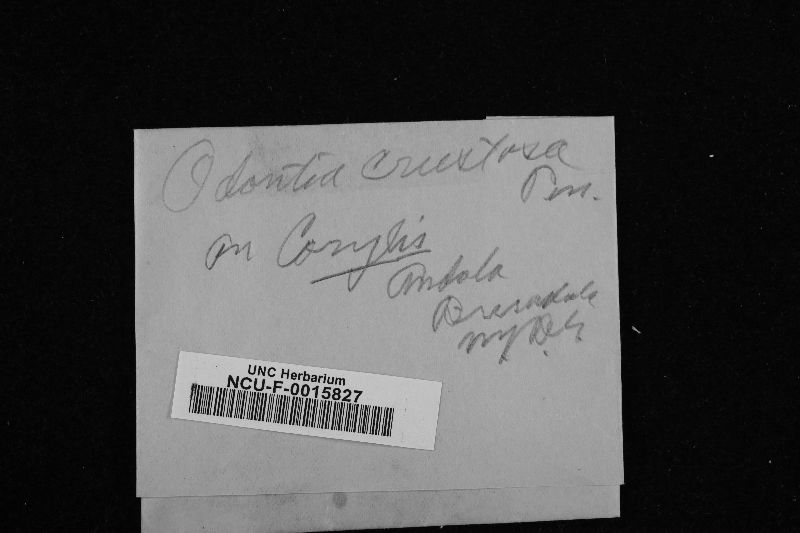 Odontia crustosa
Pers.
on Corylis
Andola
Bresadola
UNC Herbarium
NCU-F-0015827